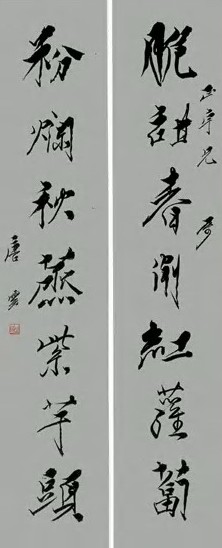 正宇兄
脃甜春紅蘿蔔
粉爛秋蒸紫芋頭
唐雲